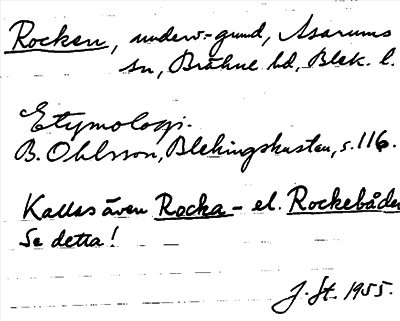 Rocken, underv.-grund, Asarums
sn, Bräkne hd, Blek. l.
Etymologi.
B. Ohlsson, Blekingskusten, s. 116.
Kallas även Rocka- el. Rockebåden
Se detta!
J. St. 1955.